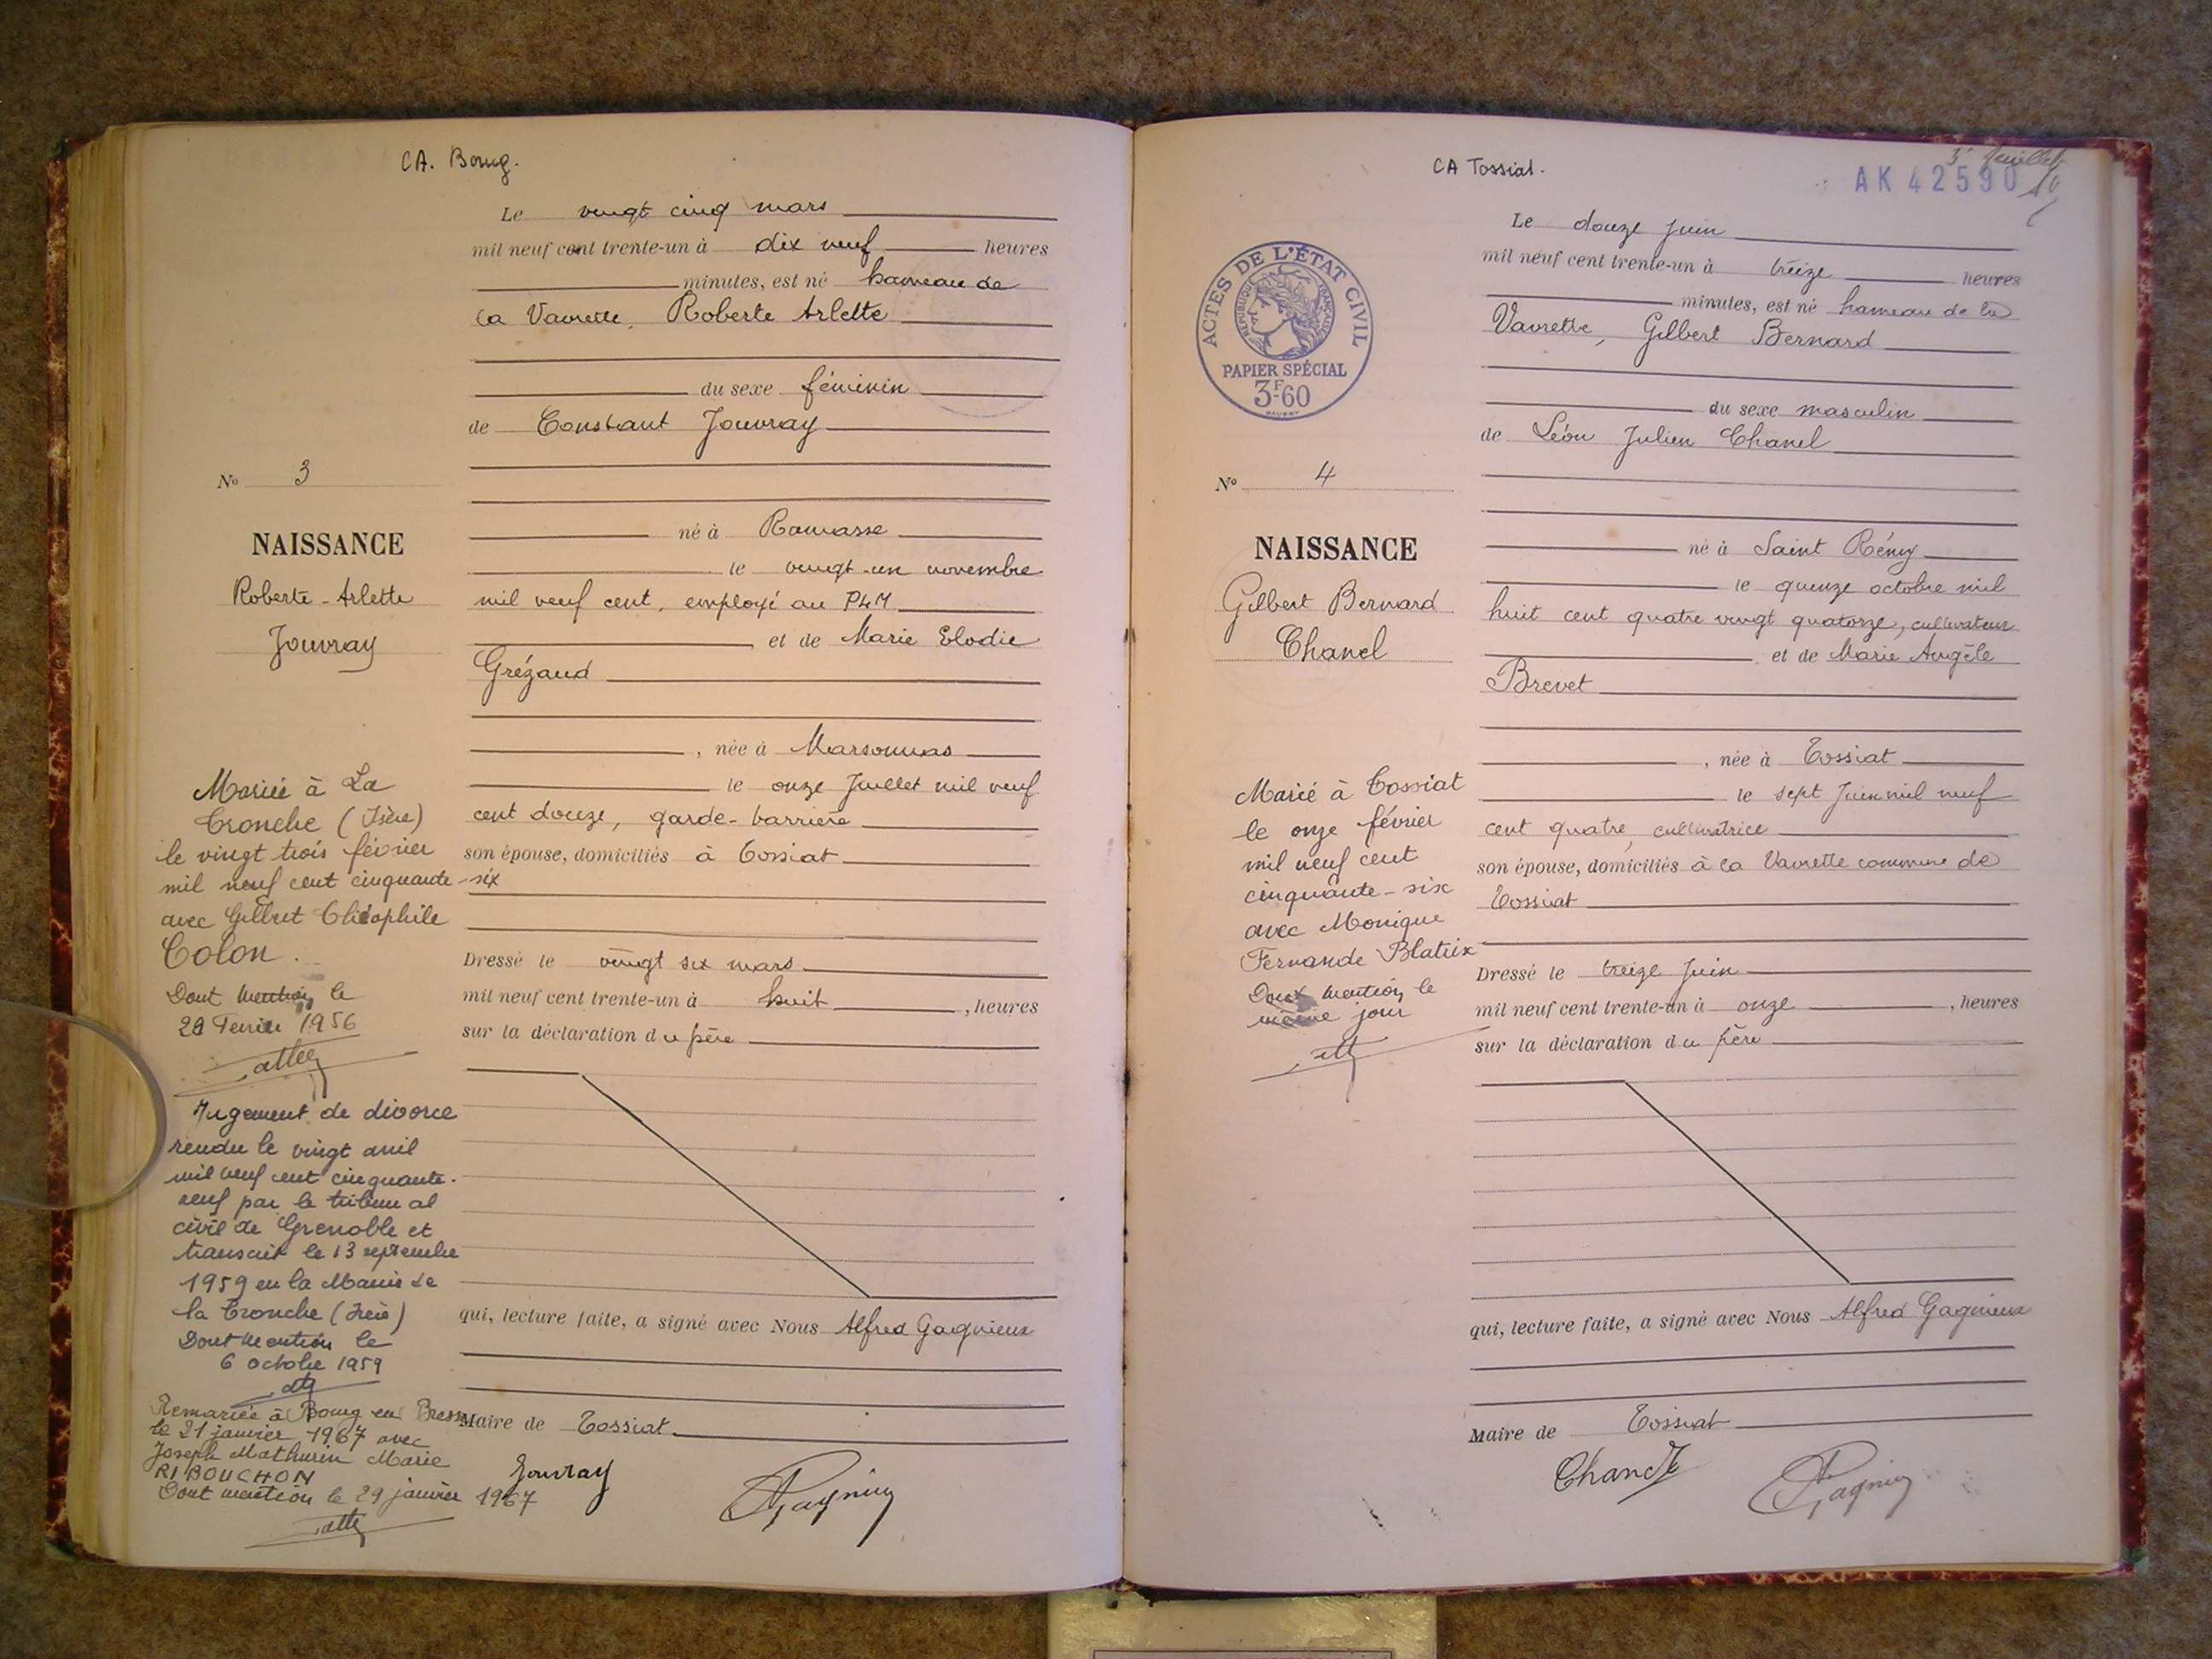 CA. Bourg.
Le vingt cinq mars
mil neuf cent trente-un à dix neuf heures
minutes, est né hameau de
la Vavrette, Roberte Arlette
du sexe féminin
de Constant Jouvray
né à Ramasse
le vingt-un novembre
mil neuf cent, employé au PLM
et de Marie Elodie
Grézaud
, née à Marsonnas
le onze Juillet mil neuf
cent douze, garde-barrière
son épouse, domiciliés à Tossiat
Dressé le vingt six mars
mil neuf cent trente-un à huit , heures
sur la déclaration du père
qui, lecture faite, a signé avec Nous Alfred Gagnieux
Maire de Tossiat
Jouvray
Gagnieux
No 3
NAISSANCE
Roberte-Arlette
Jouvray
Mariée à La
Tronche (Isère)
le vingt trois février
mil neuf cent cinquante-six
avec Gilbert Théophile
Colon.
Dont mention le
Février 1956
Jugement de divorce
rendu le vingt avril
mil neuf cent cinquante-
neuf par le tribunal
civil de Grenoble et
transcrit le 13 septembre
1959 en la Mairie de
la Tronche (Isère)
Dont mention le
6 octobre 1959
Remariée à Bourg en Bresse
le 21 janvier 1967 avec
Joseph Mathurin Marie
RIBOUCHON
Dont mention le 29 janvier 1967
CA Tossiat.
3e feuillet
AK 42590
ACTES DE L'ÉTAT CIVIL
RÉPUBLIQUE FRANÇAISE
PAPIER SPÉCIAL
3F.60
Le douze juin
mil neuf cent trente-un à treize heures
minutes, est né hameau de la
Vavrette, Gilbert Bernard
du sexe masculin
de Léon Julien Chanel
né à Saint Rémy
le quinze octobre mil
huit cent quatre vingt quatorze, cultivateur
et de Marie Angèle
Brevet
, née à Tossiat
le sept Juin mil neuf
cent quatre, cultivatrice
son épouse, domiciliés à la Vavrette commune de
Tossiat
Dressé le treize Juin
mil neuf cent trente-un à onze , heures
sur la déclaration du père
qui, lecture faite, a signé avec Nous Alfred Gagnieux
Maire de Tossiat
Chanel
Gagnieux
No 4
NAISSANCE
Gilbert Bernard
Chanel
Marié à Tossiat
le onze février
mil neuf cent
cinquante-six
avec Monique
Fernande Blatrix
Dont mention le
même jour